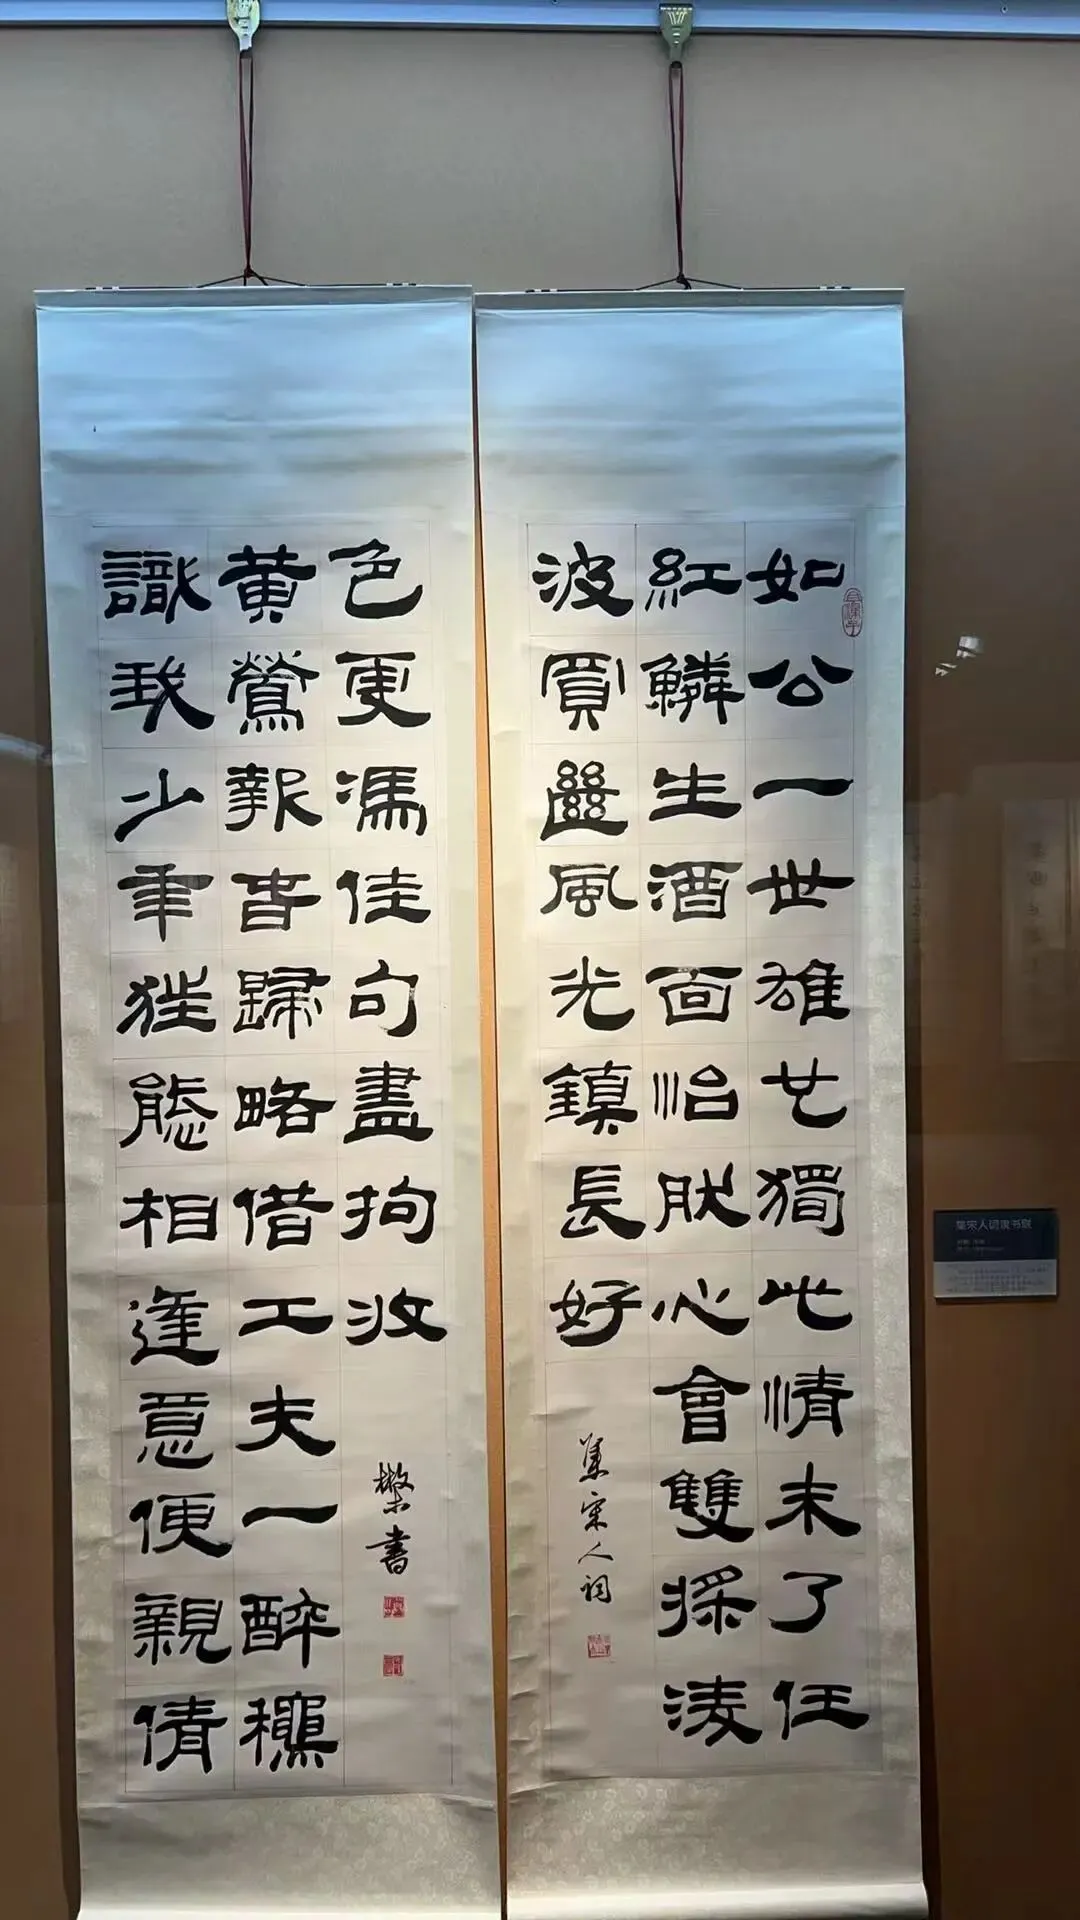 如公一世雄也獨此情未了任
紅鱗生酒面怡肰心會雙採凌
波買斷風光鎮長好
集宋人詞
識我少年狂態相逢意便親倩
黄鶯報春歸略借工夫一醉龝
色更馮佳句盡拘收
書
集宋人词隶书联